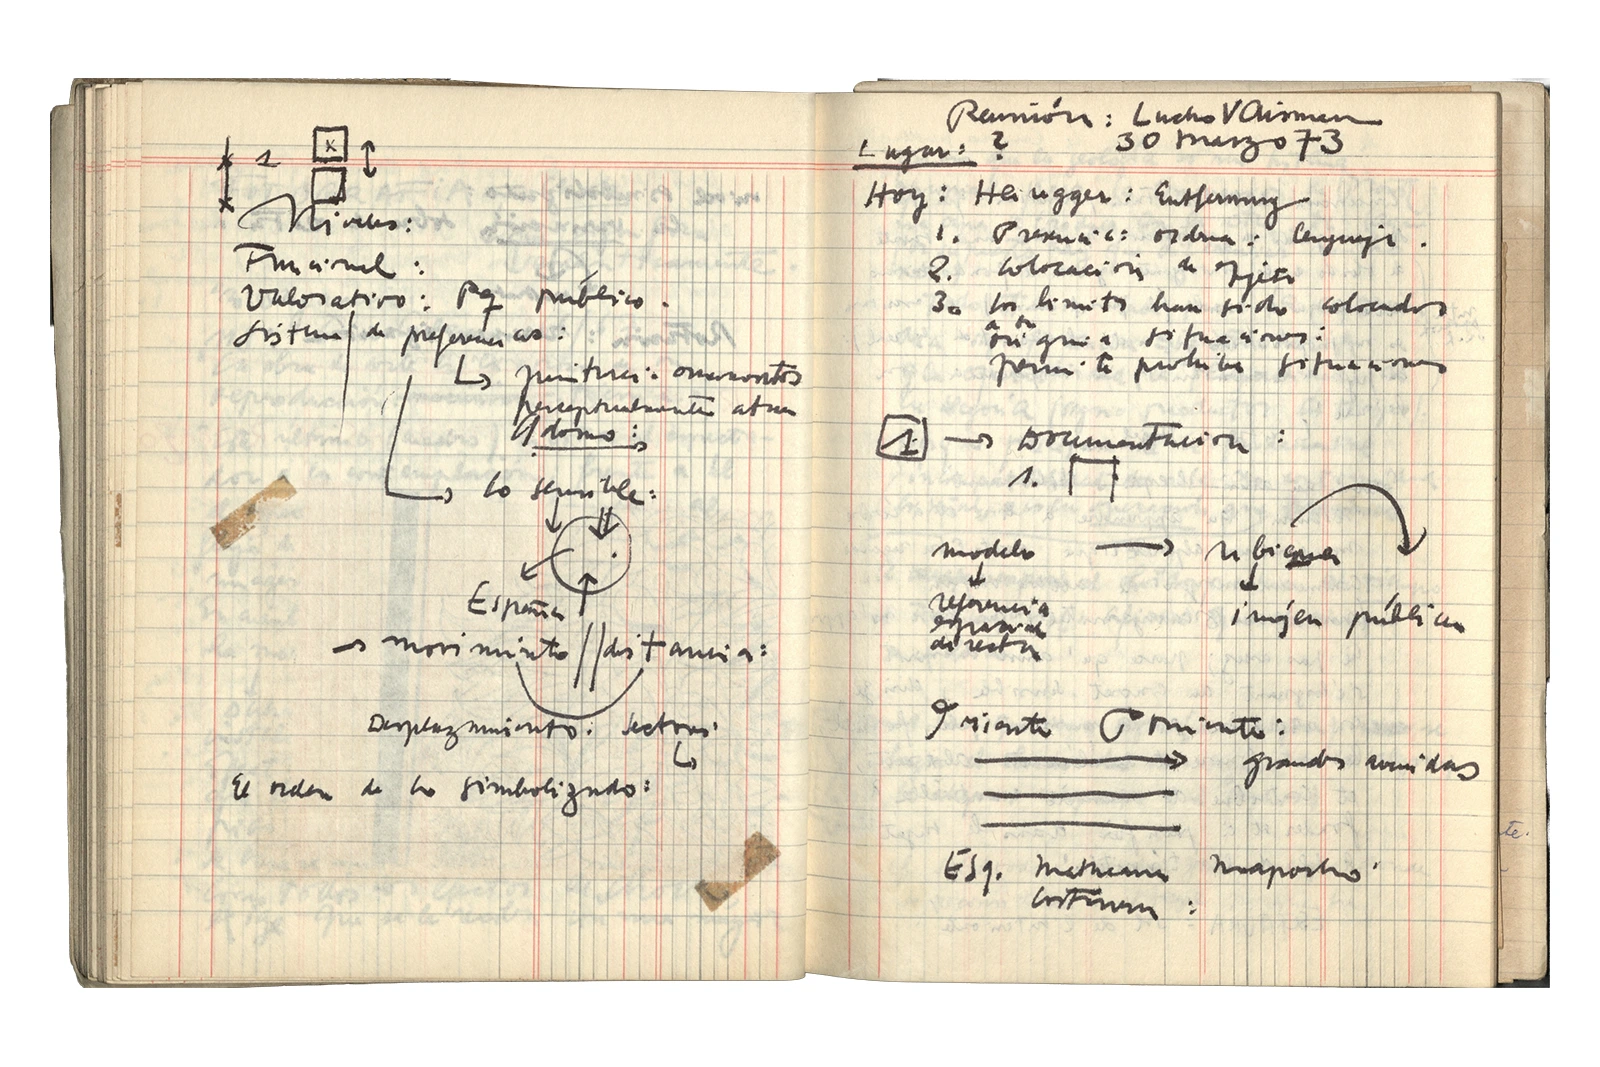 1
K
Niveles:
Funcional:
Valorativo: Pq público.
Sistema de preferencias:
perceptualmente
Adorno:
Lo sensible:
España
→ movimiento // distancia:
Desplazamiento: lectura:
El orden de lo simbolizado:
Reunión: Lucho Vaisman
Lugar: ? 30 Marzo 73
Hoy: Heidegger: Entfernung
1. Presencia: ordena: lenguaje.
2. colocación de objeto
3. los limites han sido colocados
situaciones:
permite prohibe situaciones
1. → Documentacion:
1.
modelo → ubiquen
referencia
espacial
directa
imájen pública
Oriente Poniente:
grandes avenidas
Esq. Mapocho
te.